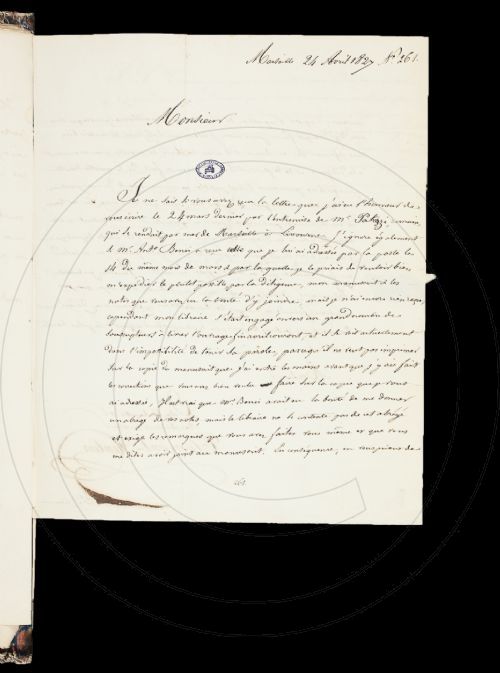 Marseille 24 Avril 1827 N° 261.
Monsieur
Je ne sais si vous avez reçu la lettre que j'ai eu l'honneur de
vous écrire le 24 mars dernier par l'entremise de Mr.
qui se rendait par mer de Marseille à Livourne. J'ignore également
si Mr. Anto. Bonin a reçu celle que je lui ai adressée par la poste le
14 du même mois de mars & par laquelle je le priais de vouloir bien
m'expédier le plutôt possible par la diligence, mon manuscrit & les
notes que vous avez eu la bonté d'y joindre, mais je n'ai encore rien reçu,
cependant mon libraire s'étant engagé envers un grand nombre de
souscripteurs à livrer l'ouvrage, il se voit actuellement
dans l'impossibilité de tenir sa parole, parcequ'il ne veut pas imprimer
sur la copie du manuscrit que j'ai entre les mains avant que j'y aie fait
les corrections que vous avez bien voulu faire sur la copie que je vous
ai adressée. Il est vrai que Mr. Bonin avait eu la bonté de me donner
un abrégé de vos notes, mais le libraire ne se contente pas de cet abrégé
et exige les remarques que vous avez faites vous même et que vous
me dites avoir joint au manuscrit. En conséquence, en vous priant de
261.